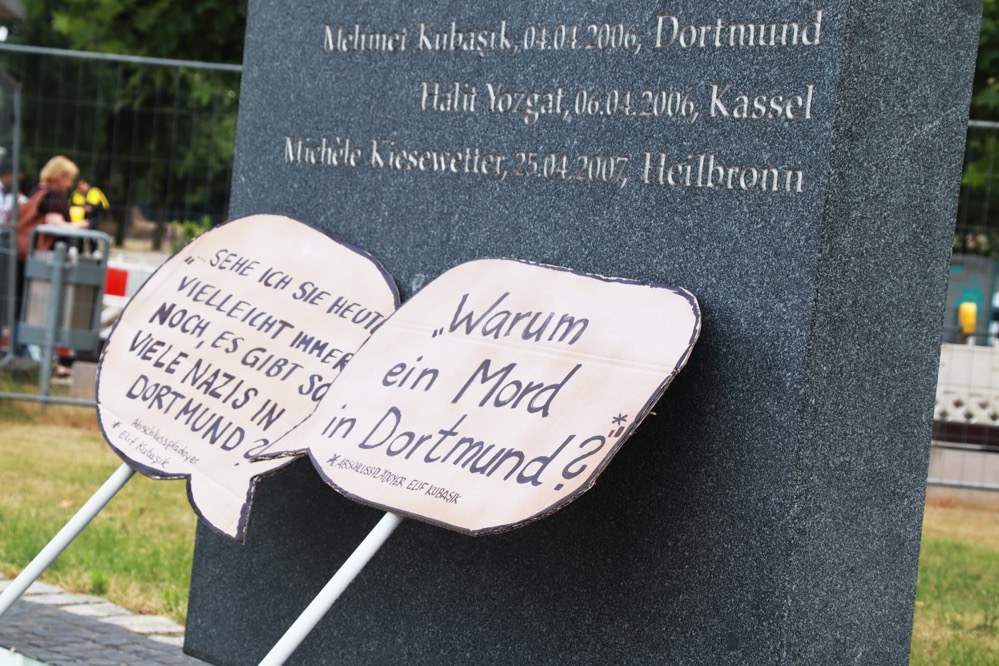 Mehmet Kubaşık, 04.04.2006, Dortmund
Halit Yozgat, 06.04.2006, Kassel
Michèle Kiesewetter, 25.04.2007, Heilbronn
"SEHE ICH SIE HEUTE
VIELLEICHT IMMER
NOCH, ES GIBT SO
VIELE NAZIS IN
DORTMUND?
Abschlussplädoyer
* Elif Kubaşik
„Warum
ein Mord
in Dortmund!?"*
*ABSCHLUSSPLÄDOYER ELIF KUBAŞIK